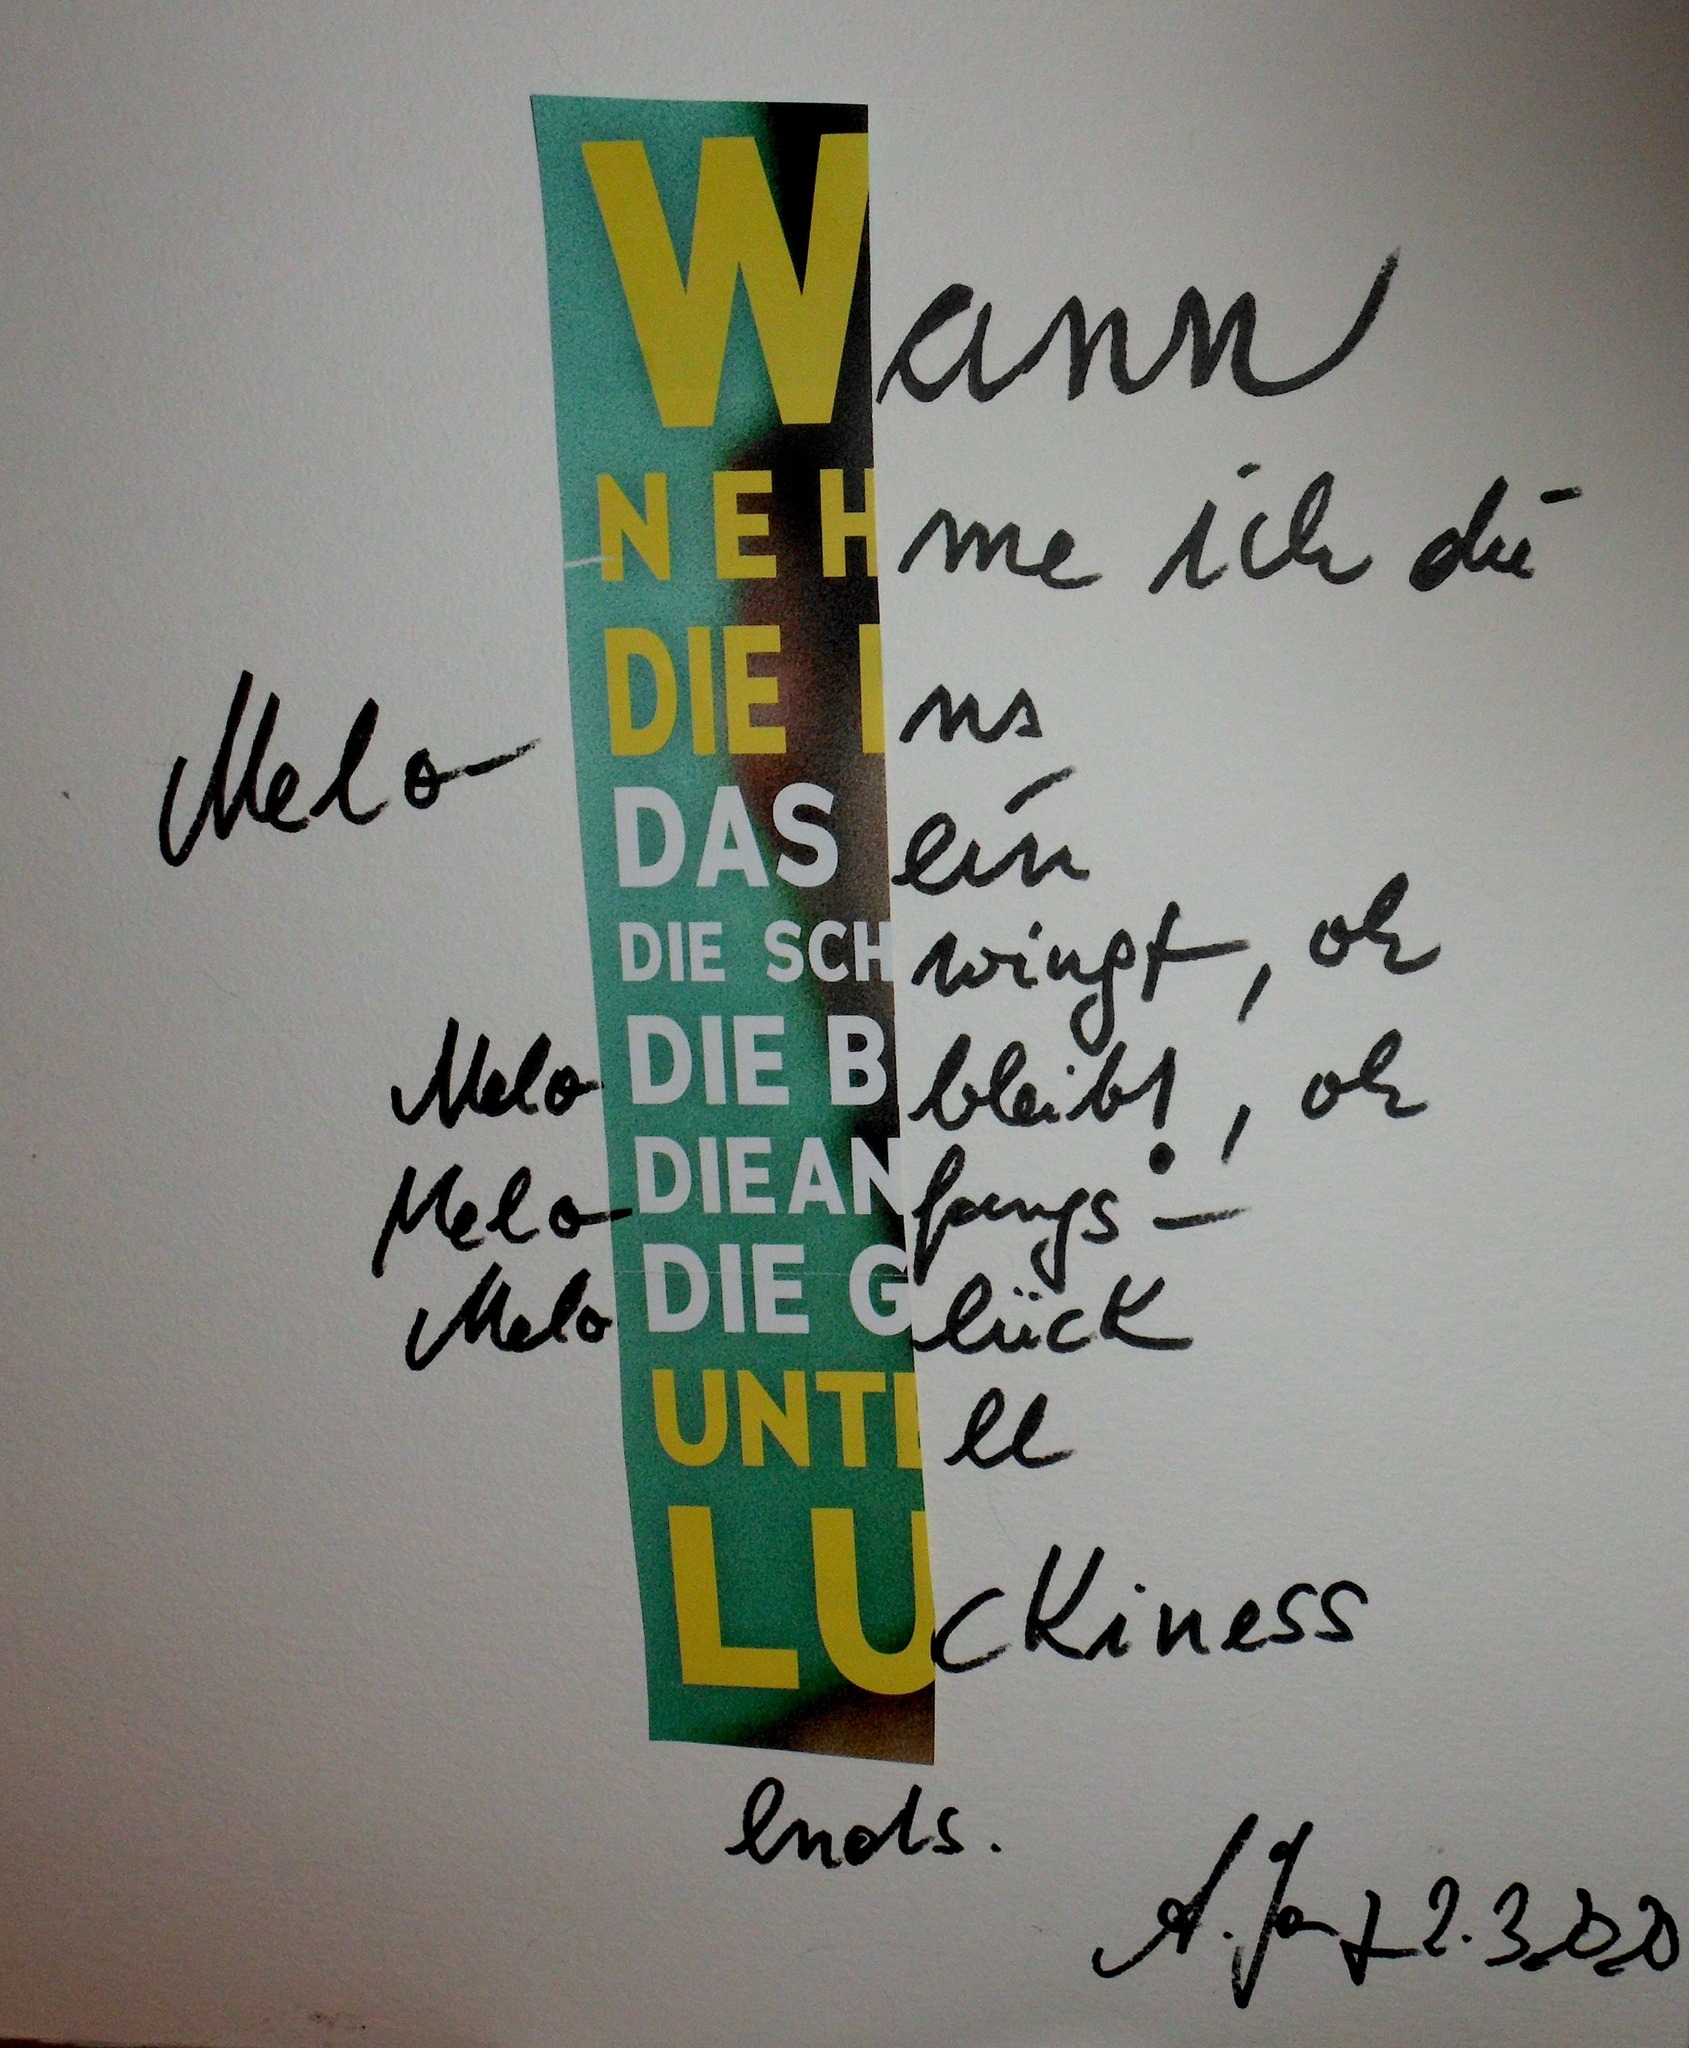 Wann
NEHme ich die
Melo-DIE Ins
DAS ein
DIE SCHwingt, oh
Melo-DIE Bbleibt, oh
Melo-DIE ANfangs-
Melo DIE Glück
UNTIll
LUcKiness
ends.
2.3.2020